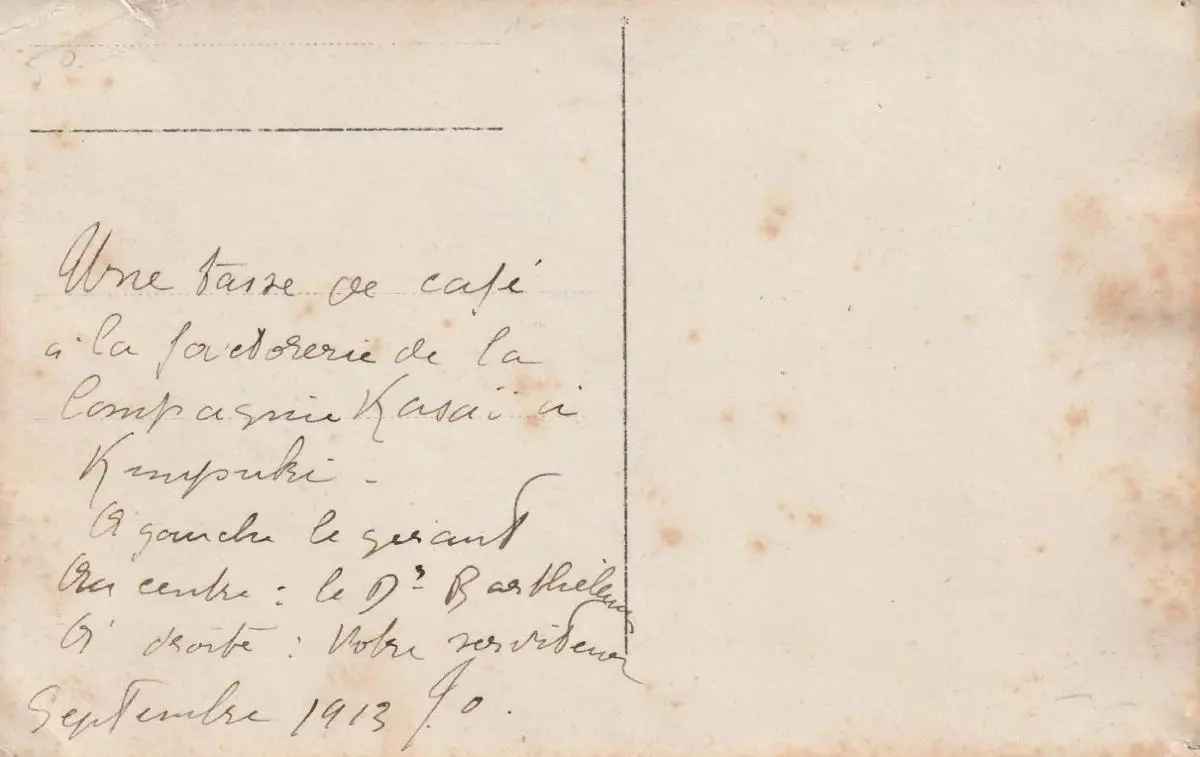 Une tasse de café
à la factorerie de la
Compagnie Kasaï à
Kimpuki -
A gauche le gérant
Au centre : le Dr Barthélemy
A droite : Votre serviteur
Septembre 1913 Jo.